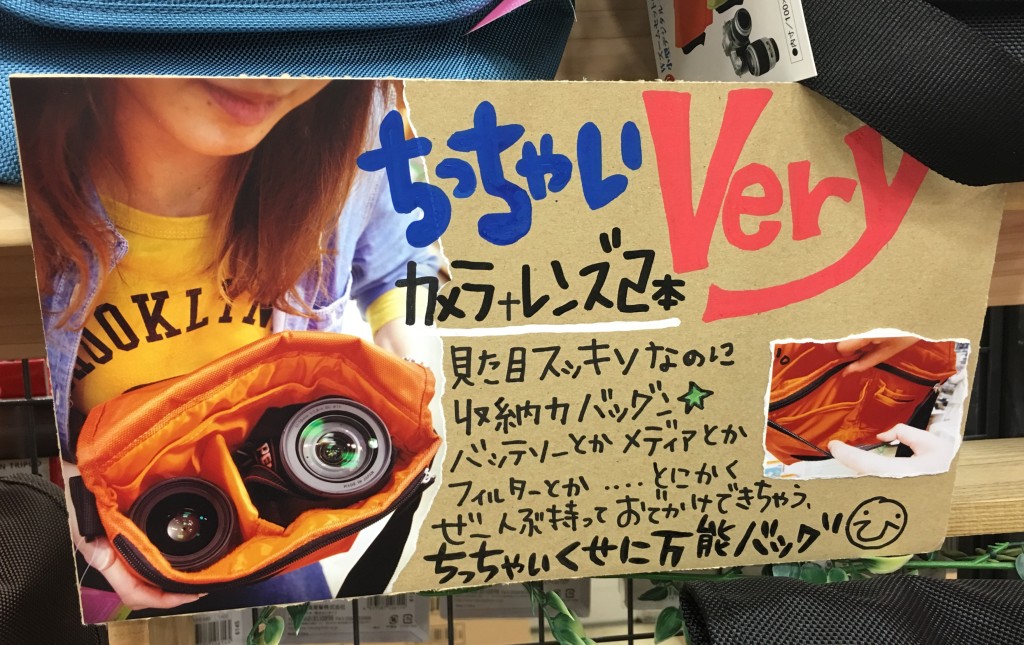 ちっちゃいVery
カメラ+レンズ2本
見た目スッキリなのに
収納力バッグン☆
バッテリーとか メディアとか
フィルターとか ‥‥ とにかく
ぜーんぶ持っておでかけできちゃう、
ちっちゃいくせに万能バッグ ひ
ROOKLYN